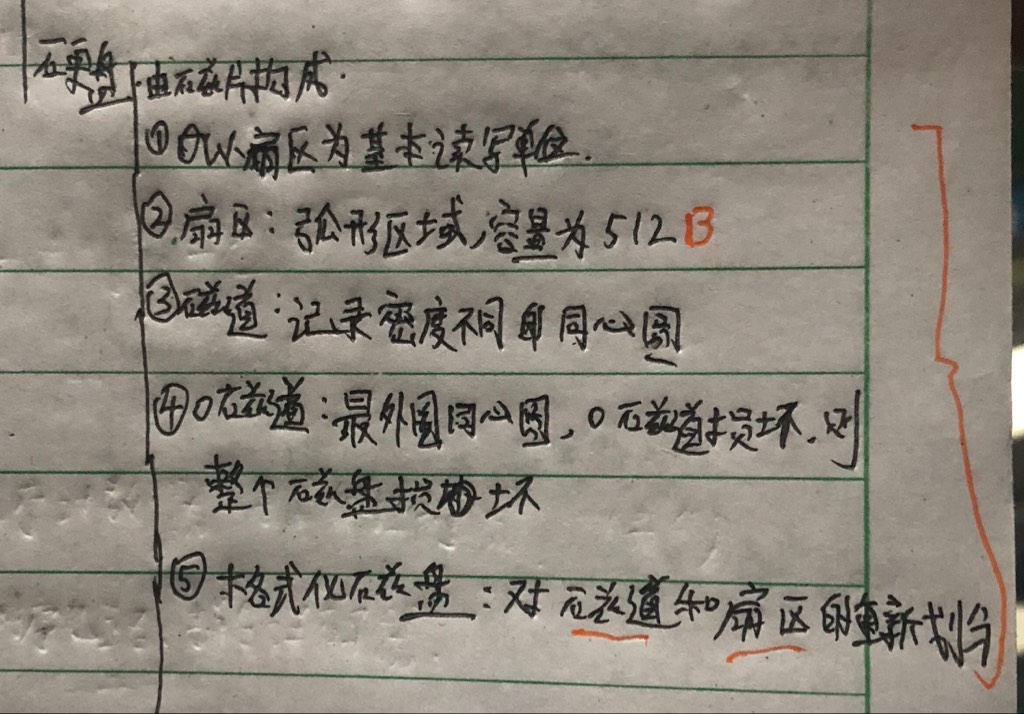 硬盘 由磁片构成.
①以扇区为基本读写单位.
②扇区：弧形区域，容量为512B
③磁道：记录密度不同的同心圆
④0磁道：最外圈同心圆，0磁道损坏，则
整个磁盘损坏
⑤格式化磁盘：对磁道和扇区的重新划分